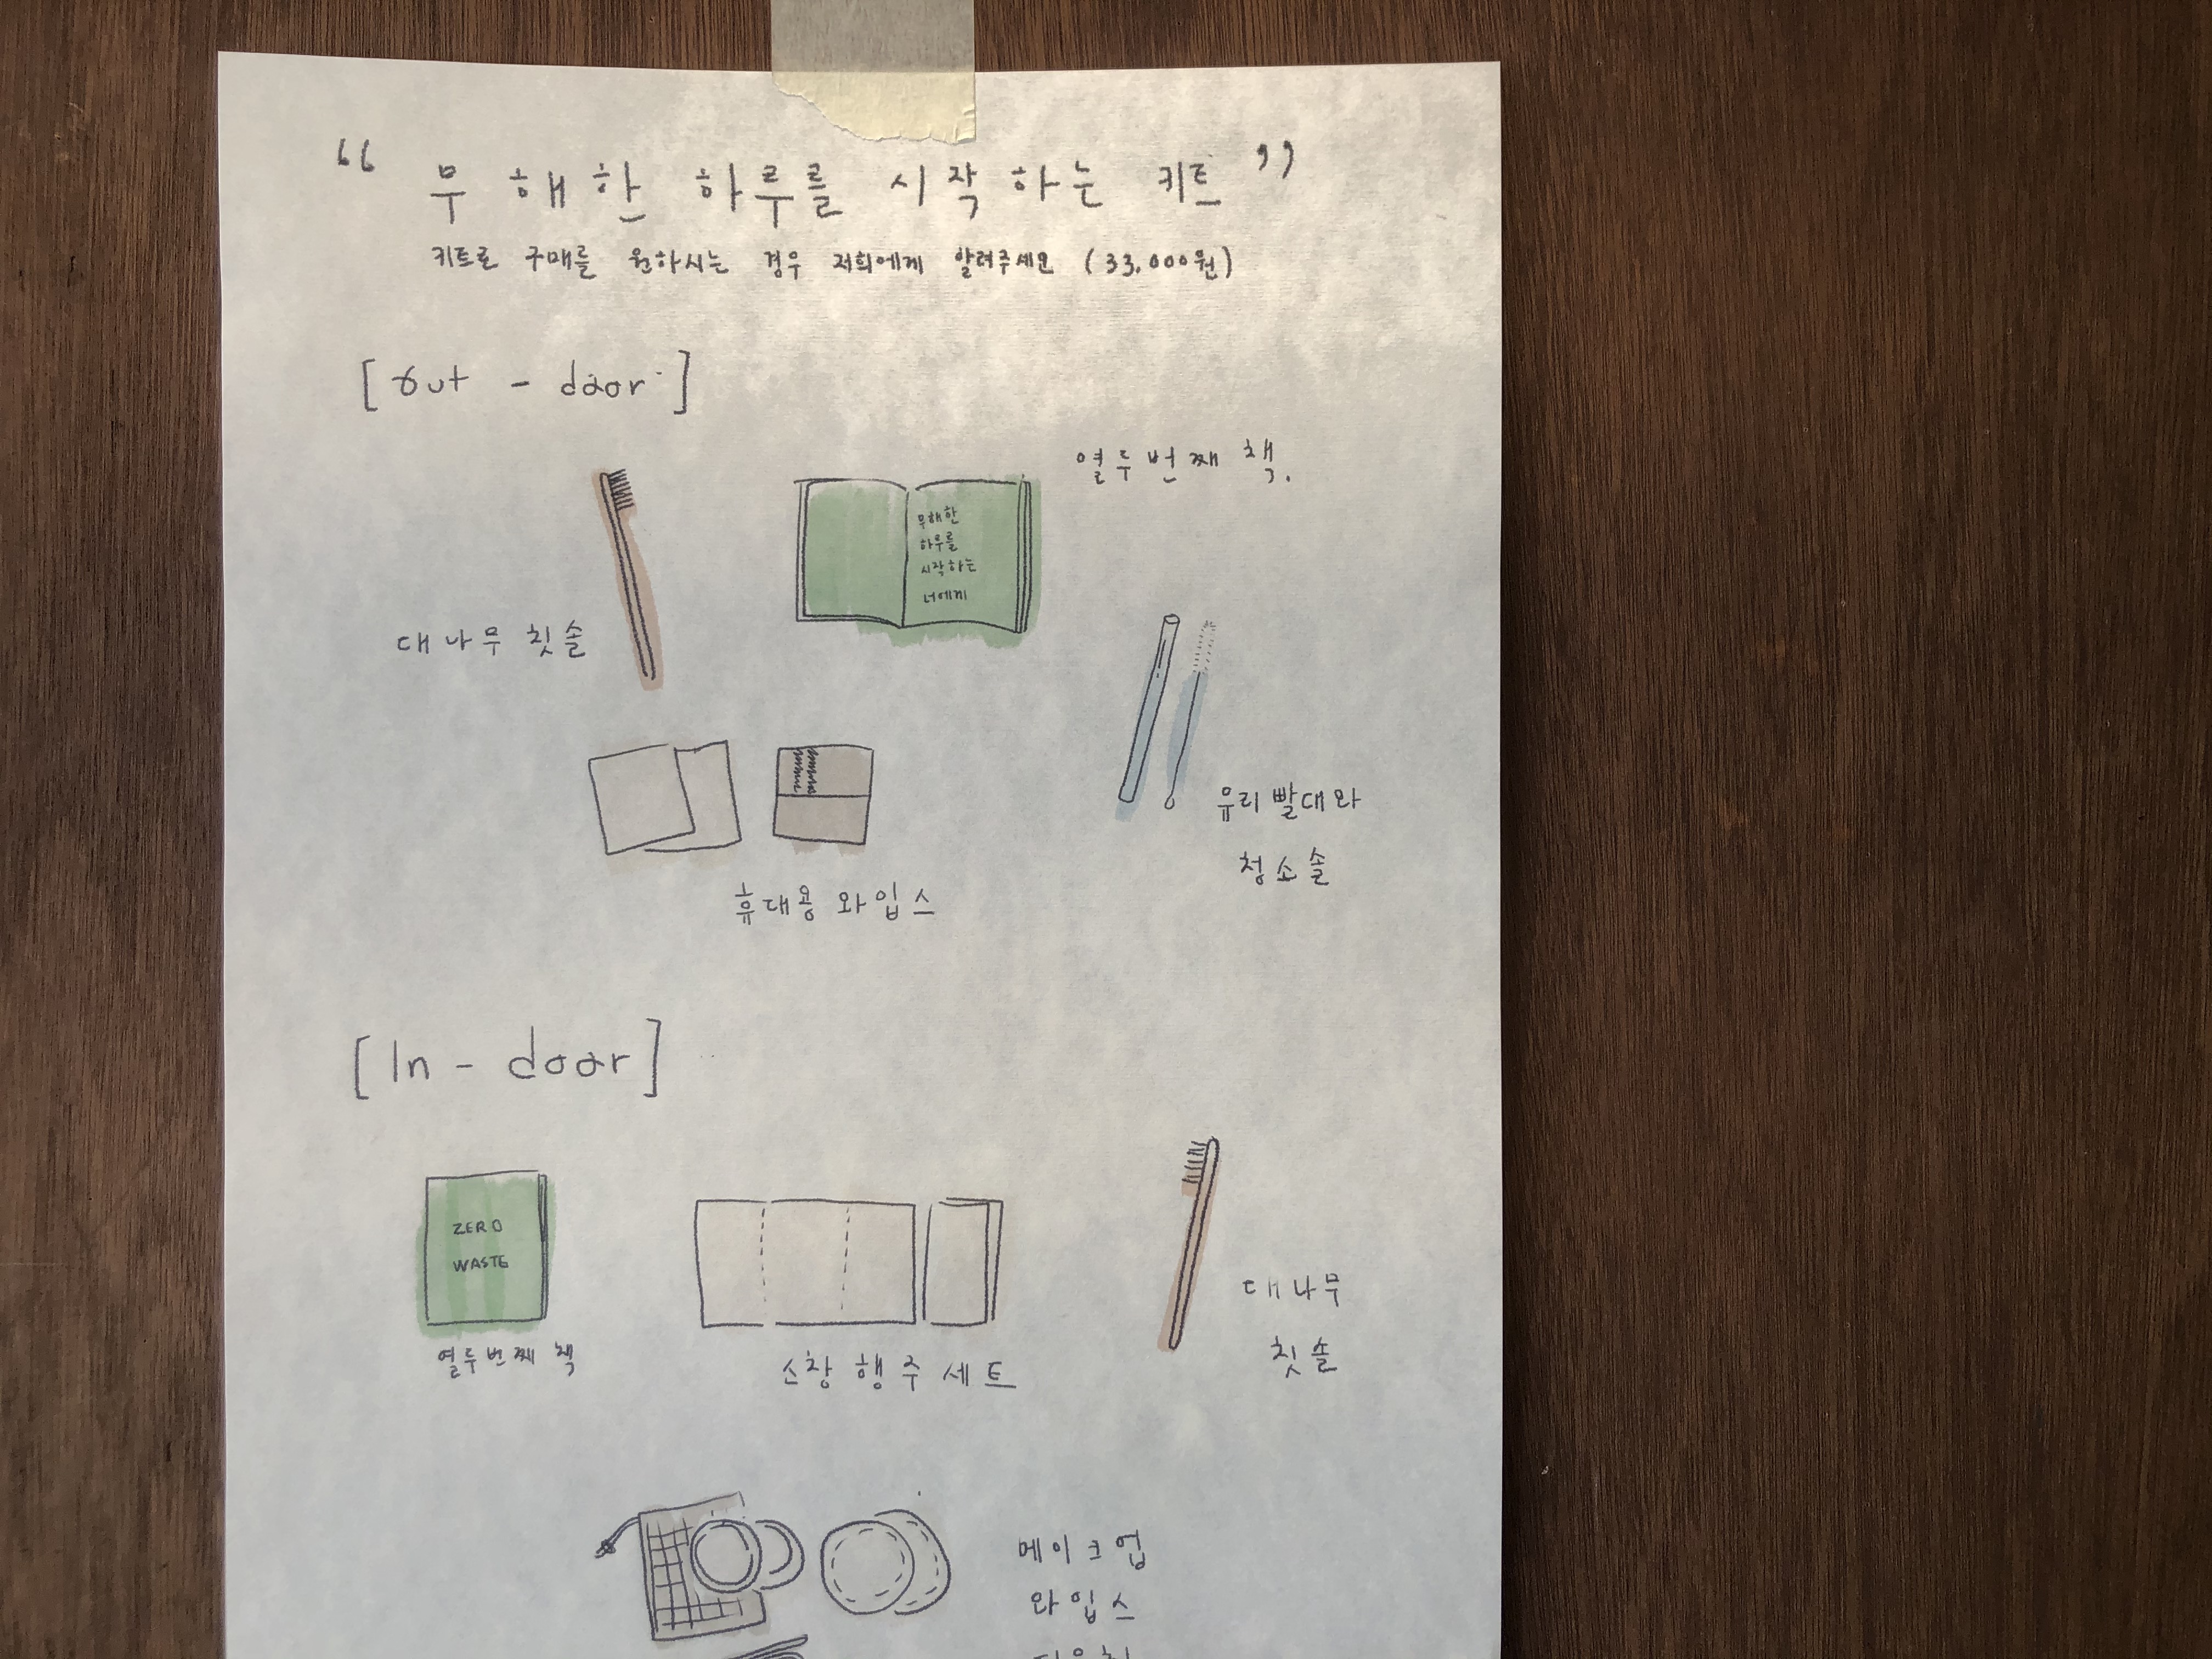 “ 무해한 하루를 시작하는 키트 ”
키트로 구매를 원하시는 경우 저희에게 알려주세요 (33,000원)
[out - door]
열두번째 책.
무해한
하루를
시작하는
너에게
대나무 칫솔
유리빨대와
청소솔
휴대용 와입스
[In - door]
ZERO
WASTE
열두번째 책
소창 행주 세트
대나무
칫솔
메이크업
와입스